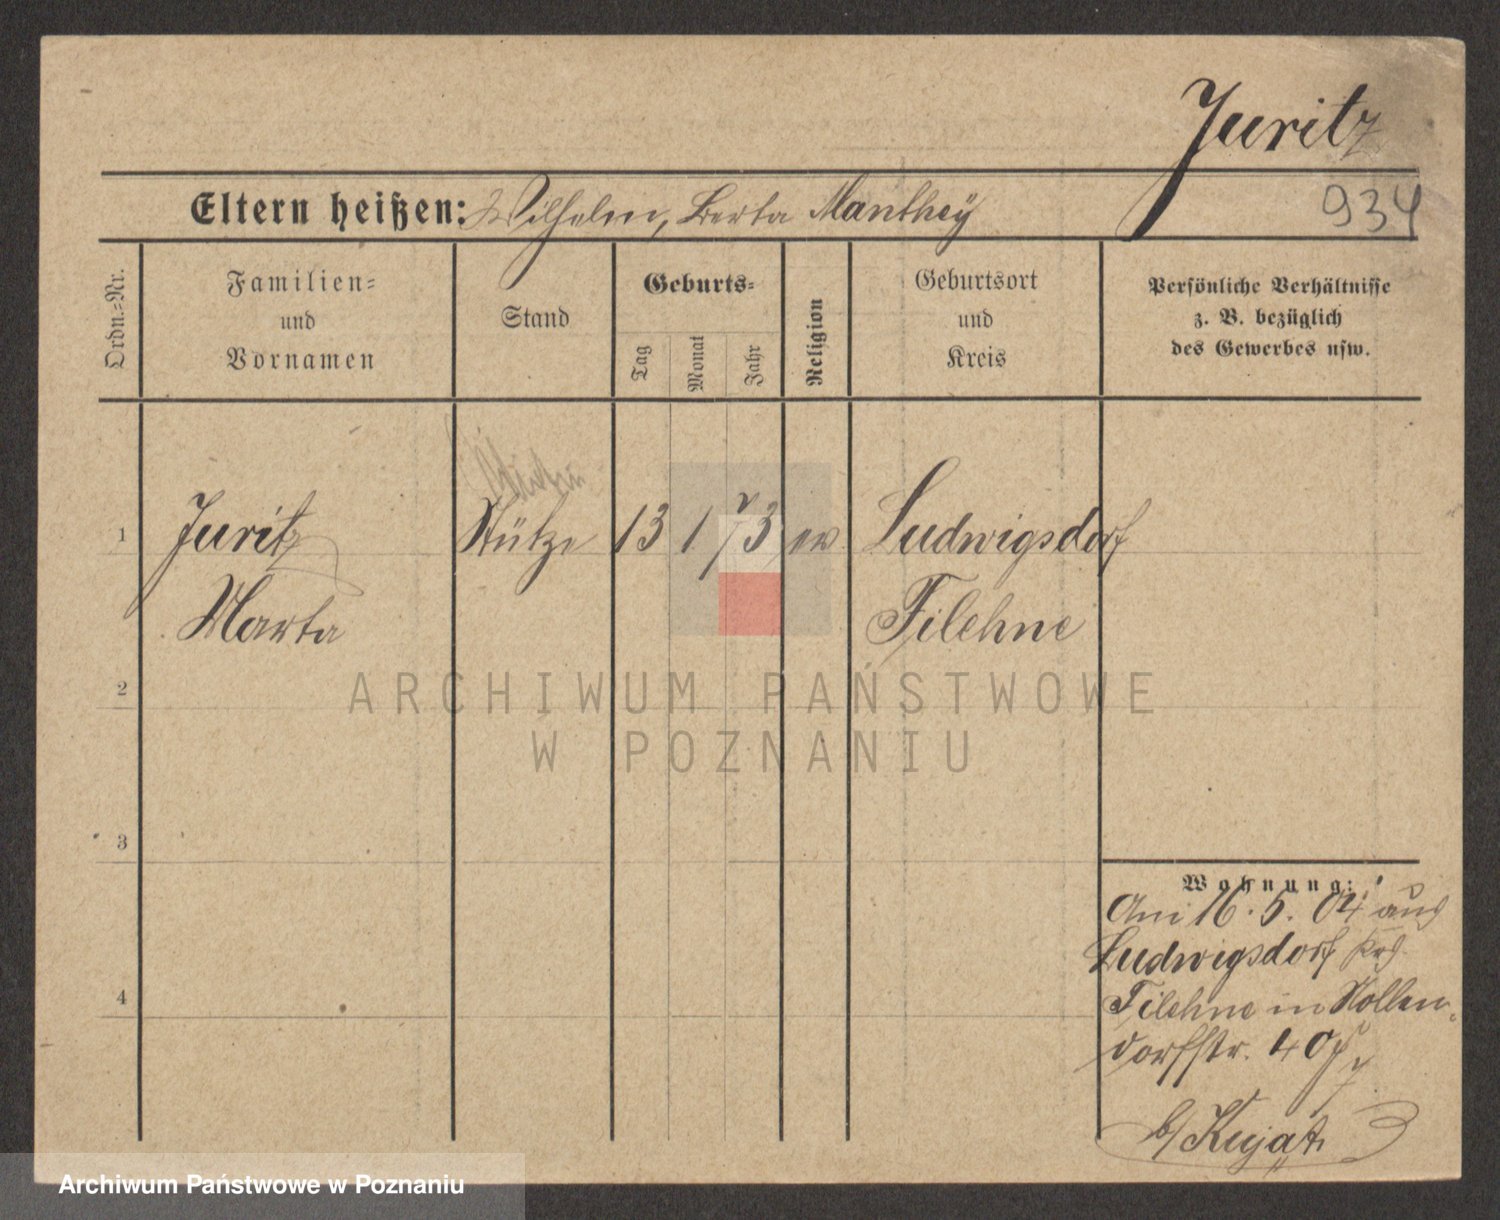 Juritz
934
Eltern heißen: Wilhelm, Berta Manthey
Ordn.=Nr.
Familien=
und
Vornamen
Stand
Geburts=
Tag
Monat
Jahr
Religion
Geburtsort
und
Kreis
Persönliche Verhältnisse
z. B. bezüglich
des Gewerbes usw.
1 Juritz Stütze 13 1 73 ev Ludwigsdorf
Marta Filehne
2
3
4
Wohnung:
Am 16.5.04 aus
Ludwigsdorf Krs.
Filehne in Nollen-
dorfstr. 40
b/ Kujat
ARCHIWUM PAŃSTWOWE
W POZNANIU
Archiwum Państwowe w Poznaniu